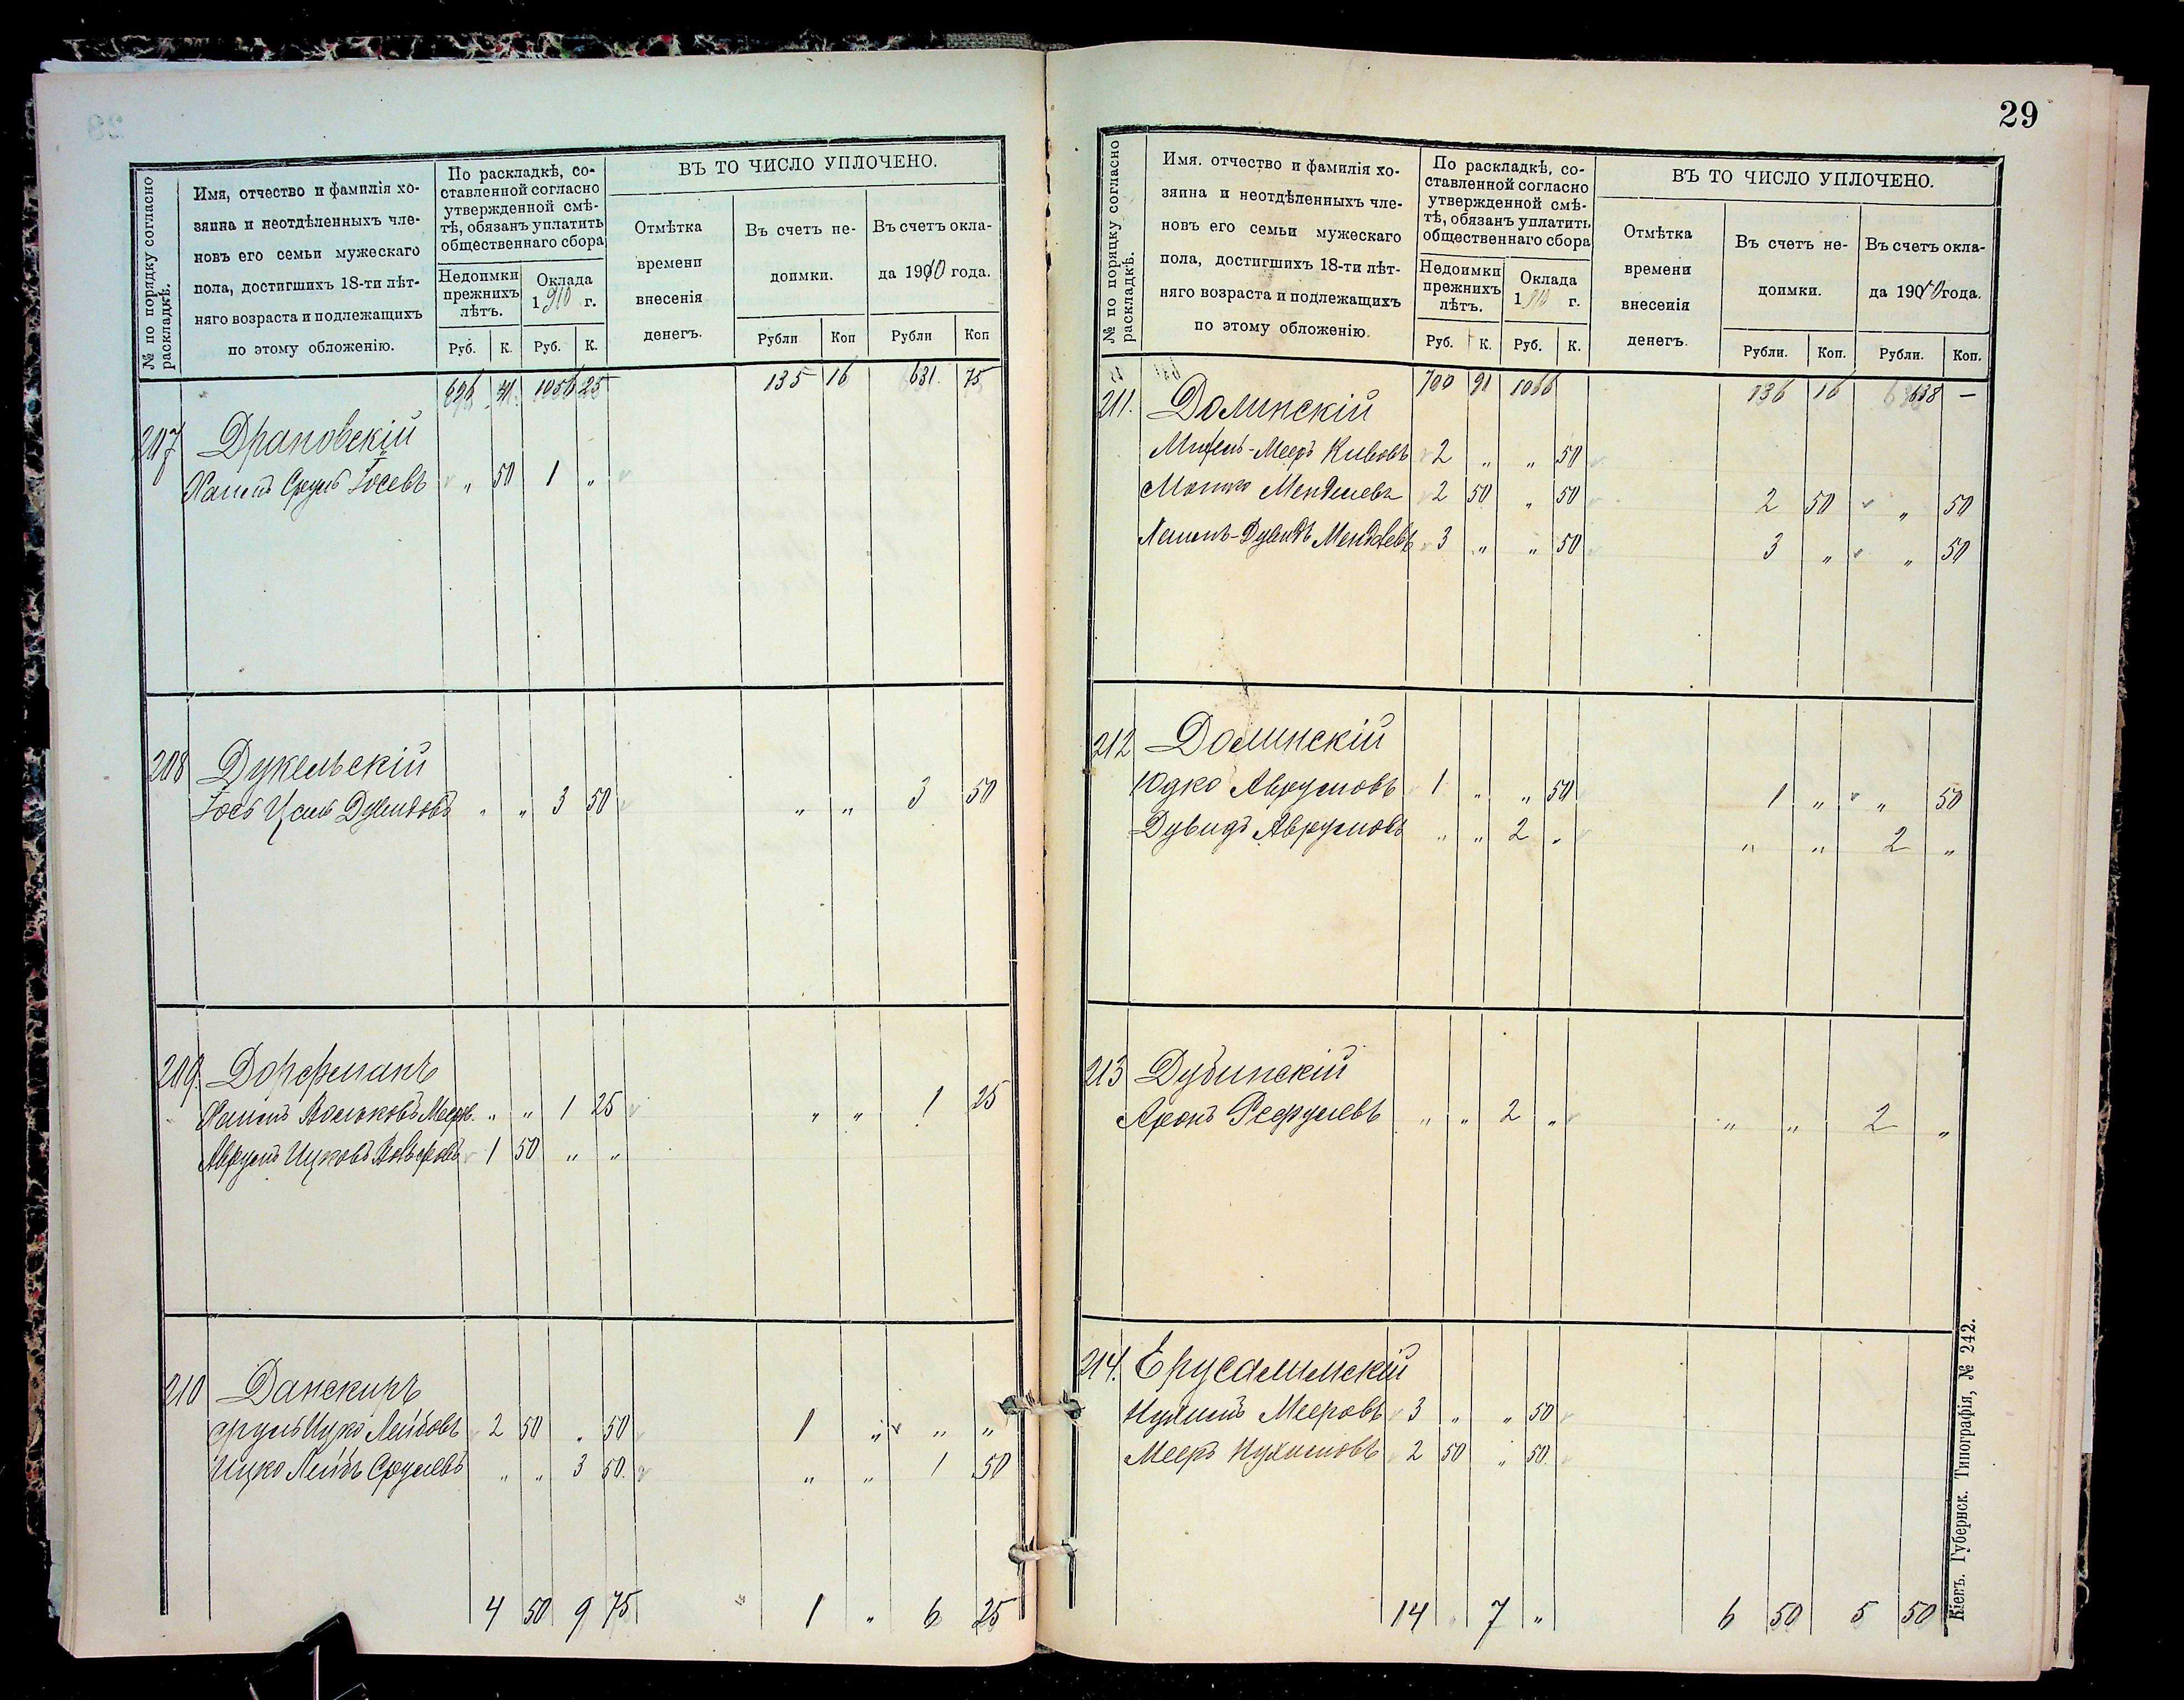 № по порядку согласно раскладкѣ.
Имя, отчество и фамилія хо-
зяина и неотдѣленныхъ чле-
новъ его семьи мужескаго
пола, достигшихъ 18-ти лѣт-
няго возраста и подлежащихъ
по этому обложенію.
По раскладкѣ, со-
ставленной согласно
утвержденной смѣ-
тѣ, обязанъ уплатить
общественнаго сбора
Недоимки
прежнихъ
лѣтъ.
Оклада
1910 г.
Руб. К. Руб. К.
ВЪ ТО ЧИСЛО УПЛОЧЕНО.
Отмѣтка
времени
внесенія
денегъ.
Въ счетъ не-
доимки.
Въ счетъ окла-
да 1910 года.
Рубли Коп Рубли Коп
696 41 1056 25 135 16 631. 75
207 Драновскій
Хаимъ Сруль Іосевъ " 50 1 "
208 Дукельскій
Іось Дувидовъ " " 3 50 " " 3 50
209. Дорфманъ
Хаимъ Вольковъ " " 1 25 " " 1 25
Аврумъ Ицковъ 1 50 " "
210 Данскиръ
Сруль Ицко Лейбовъ 2 50 " 50 1 " " "
Ицко Лейбъ Срулевъ " " 3 50. " " 1 50
4 50 9 75 1 " 6 25
29
№ по порядку согласно раскладкѣ.
Имя. отчество и фамилія хо-
зяина и неотдѣленныхъ чле-
новъ его семьи мужескаго
пола, достигшихъ 18-ти лѣт-
няго возраста и подлежащихъ
по этому обложенію.
По раскладкѣ, со-
ставленной согласно
утвержденной смѣ-
тѣ, обязанъ уплатить
общественнаго сбора
Недоимки
прежнихъ
лѣтъ.
Оклада
1910 г.
Руб. К. Руб. К.
ВЪ ТО ЧИСЛО УПЛОЧЕНО.
Отмѣтка
времени
внесенія
денегъ.
Въ счетъ не-
доимки.
Въ счетъ окла-
да 1910 года.
Рубли. Коп. Рубли. Коп.
700 91 1066 136 16 638 —
211. Долинскій
Мееръ Кивовъ 2 " " 50
Мошко Менделевъ 2 50 " 50 2 50 " 50
Дувидъ Менделевъ 3 " " 50 3 " " 50
212 Долинскій
Юдко Аврумовъ 1 " " 50 1 " " 50
Дувидъ Аврумовъ " " 2 " " " 2 "
213 Дубинскій
Аронъ " " 2 " " " 2 "
214. Ерусалимскій
Нухимъ Мееровъ 3 " " 50
Мееръ Нухимовъ 2 50 " 50
14 " 7 " 6 50 5 50
Кіевъ. Губернск. Типографія, № 242.